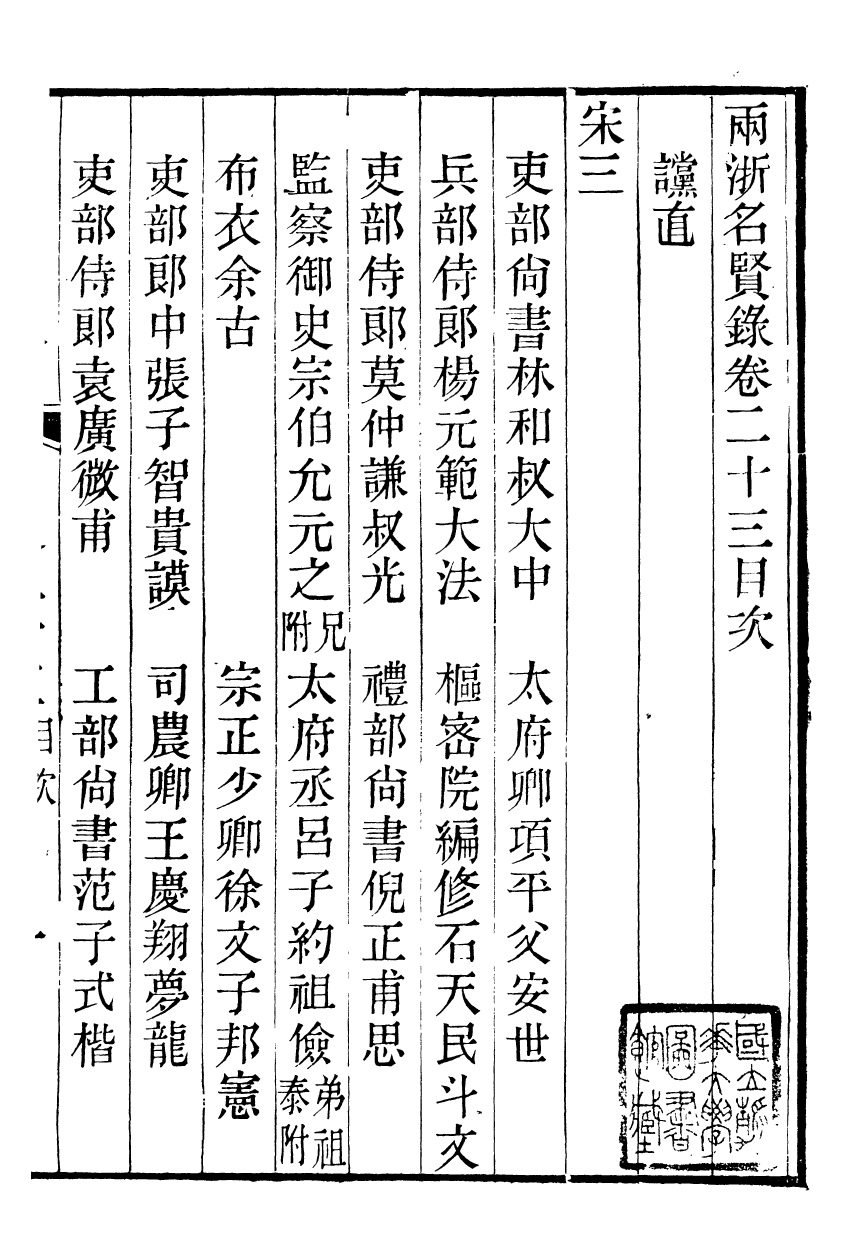 兩浙名賢錄卷二十三目次
讜直
宋三
吏部尙書林和叔大中　太府卿項平父安世
兵部侍郞楊元範大法　樞密院編修石天民斗文
吏部侍郞莫仲謙叔光　禮部尙書倪正甫思
監察御史宗伯允元之兄附　太府丞呂子約祖儉弟祖泰附
布衣余古　宗正少卿徐文子邦憲
吏部郞中張子智貴謨　司農卿王慶翔夢龍
吏部侍郞袁廣微甫　工部尙書范子式楷
目次
一
國立清華大學圖書館藏